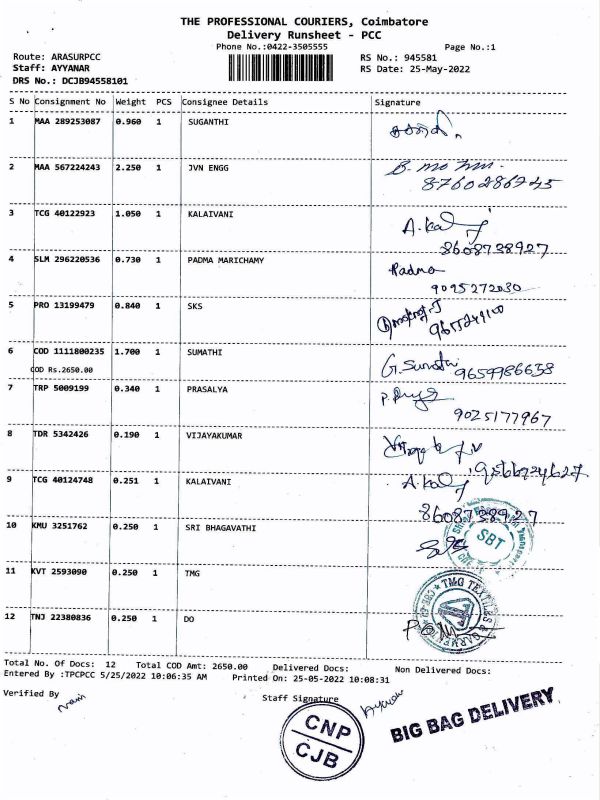 THE PROFESSIONAL COURIERS, Coimbatore
Delivery Runsheet - PCC
Phone No.:0422-3505555
Page No.:1
Route: ARASURPCC
RS No.: 945581
Staff: AYYANAR
RS Date: 25-May-2022
DRS No.: DCJB94558101
S No Consignment No Weight PCS Consignee Details Signature
1 MAA 289253087 0.960 1 SUGANTHI
2 MAA 567224243 2.250 1 JVN ENGG
8760286745
3 TCG 40122923 1.050 1 KALAIVANI A.Kal
8608738927
4 SLM 296220536 0.730 1 PADMA MARICHAMY Padma
9095272030
5 PRO 13199479 0.840 1 SKS
6 COD 1111800235 1.700 1 SUMATHI G.Sumathi 9659986658
COD Rs.2650.00
7 TRP 5009199 0.340 1 PRASALYA
9025177967
8 TDR 5342426 0.190 1 VIJAYAKUMAR
9 TCG 40124748 0.251 1 KALAIVANI A.Kal
8608738927
10 KMU 3251762 0.250 1 SRI BHAGAVATHI
SBT
11 KVT 2593090 0.250 1 TMG
TMG TEXTILES &
12 TNJ 22380836 0.250 1 DO
Total No. Of Docs: 12 Total COD Amt: 2650.00 Delivered Docs: Non Delivered Docs:
Entered By :TPCPCC 5/25/2022 10:06:35 AM Printed On: 25-05-2022 10:08:31
Verified By
Staff Signature
CNP
CJB
BIG BAG DELIVERY